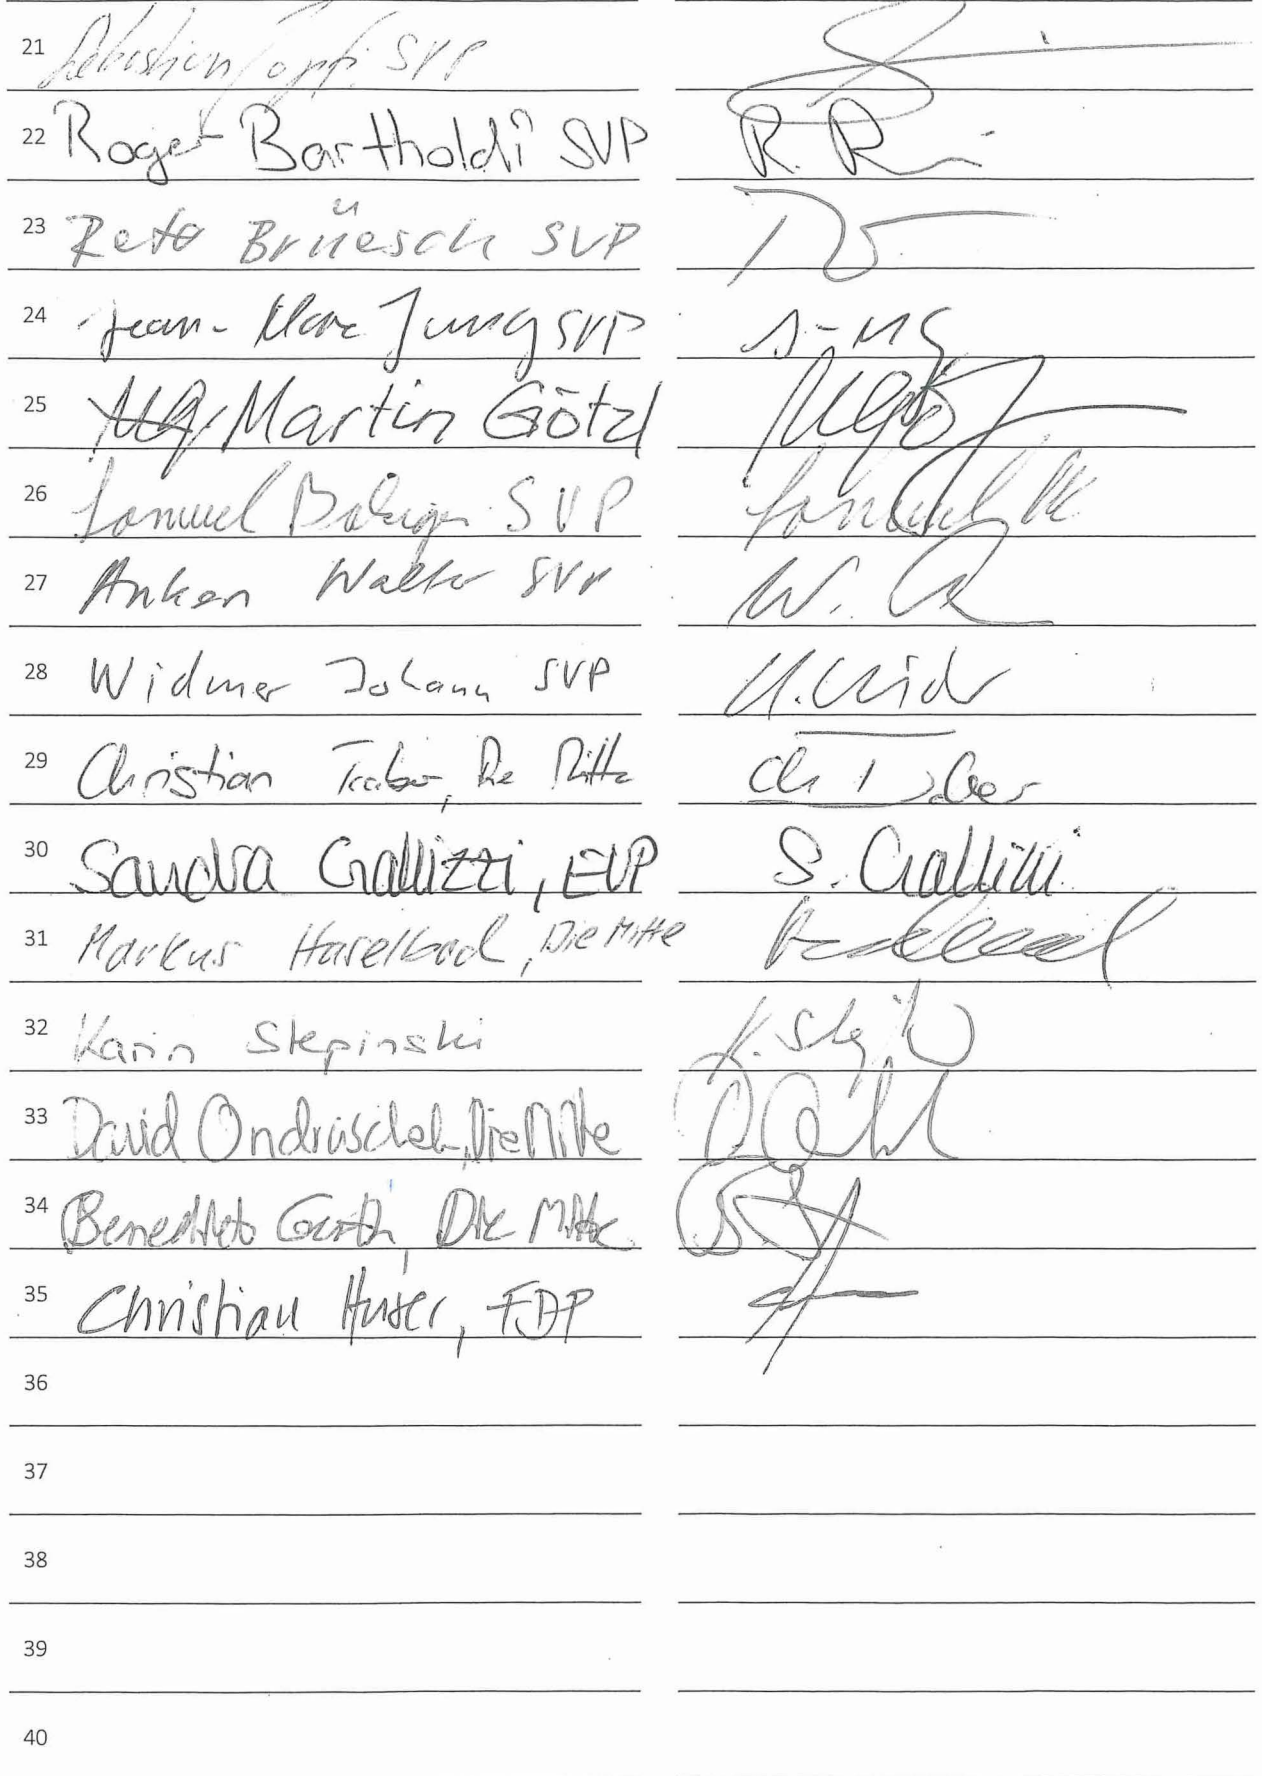 21 Sebastian Zopfi SVP
22 Roger Bartholdi SVP R. B
23 Reto Brüesch SVP
24 Jean-Marc Jung SVP
25 Martin Götzl
26 Samuel Balsiger SVP Samuel
27 Anken Walter SVP W. A
28 Widmer Johann SVP
29 Christian Traber, Die Mitte Ch Traber
30 Sandra Gallizzi, EVP S. Gallizzi
31 Markus Haselbach, Die Mitte
32 Karin Stepinski
33 David Ondraschek, Die Mitte
34 Benedikt Gerth, Die Mitte
35 Christian Huser, FDP
36
37
38
39
40